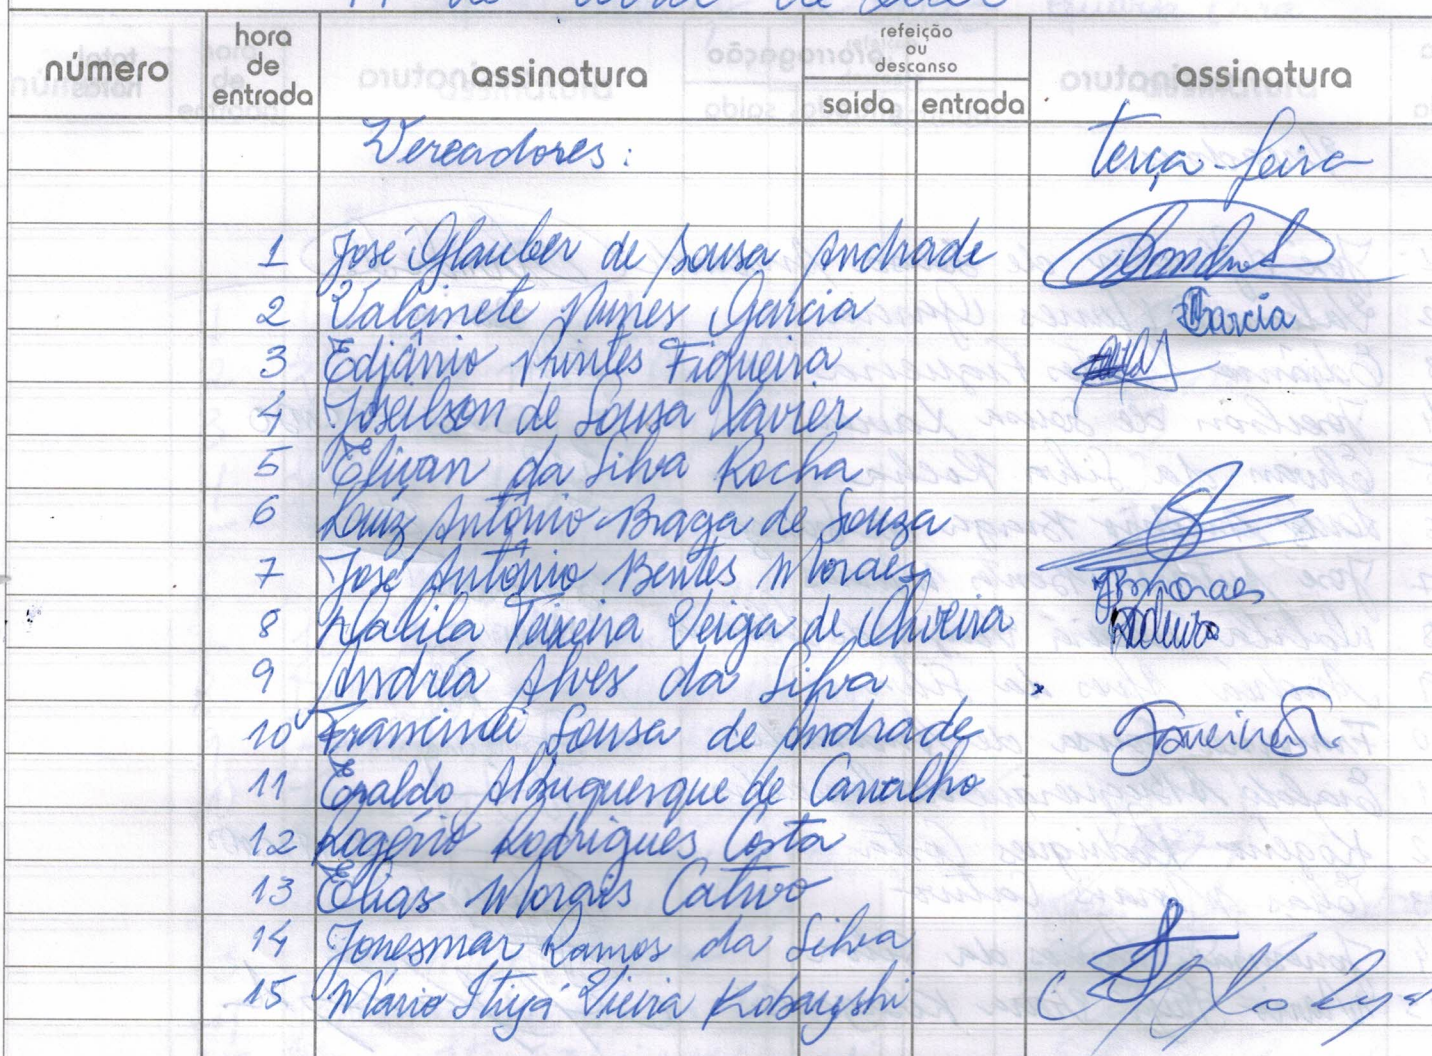 número hora de entrada assinatura refeição ou descanso saída entrada assinatura
Vereadores: terça-feira
1 José Glauber de Sousa Andrade
2 Valcinete Nunes Garcia Garcia
3 Edjânio Printes Figueira
4 Joseilson de Sousa Xavier
5 Elivan da Silva Rocha
6 Luiz Antônio Braga de Souza
7 José Antônio Bentes Moraes JBmoraes
8 Dalila Teixeira Veiga de Oliveira
9 Andréa Alves da Silva
10 Francinei Sousa de Andrade
11 Eraldo Albuquerque de Carvalho
12 Rogério Rodrigues Costa
13 Elias Morais Cativo
14 Jonesmar Ramos da Silva
15 Mário Itiyá Vieira Kobayshi